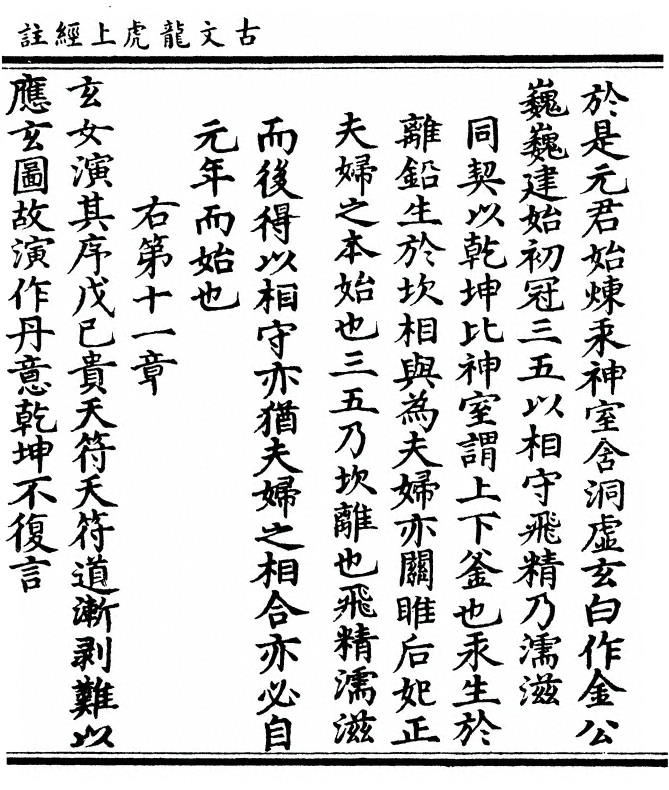 古文龍虎上經註
於是元君始煉汞神室含洞虛玄白作金公
巍巍建始初冠三五以相守飛精乃濡滋
同契以乾坤比神室謂上下釜也汞生於
離鉛生於坎相與為夫婦亦關雎后妃正
夫婦之本始也三五乃坎離也飛精濡滋
而後得以相守亦猶夫婦之相合亦必自
元年而始也
右第十一章
玄女演其序戊巳貴天符天符道漸剥難以
應玄圖故演作丹意乾坤不復言